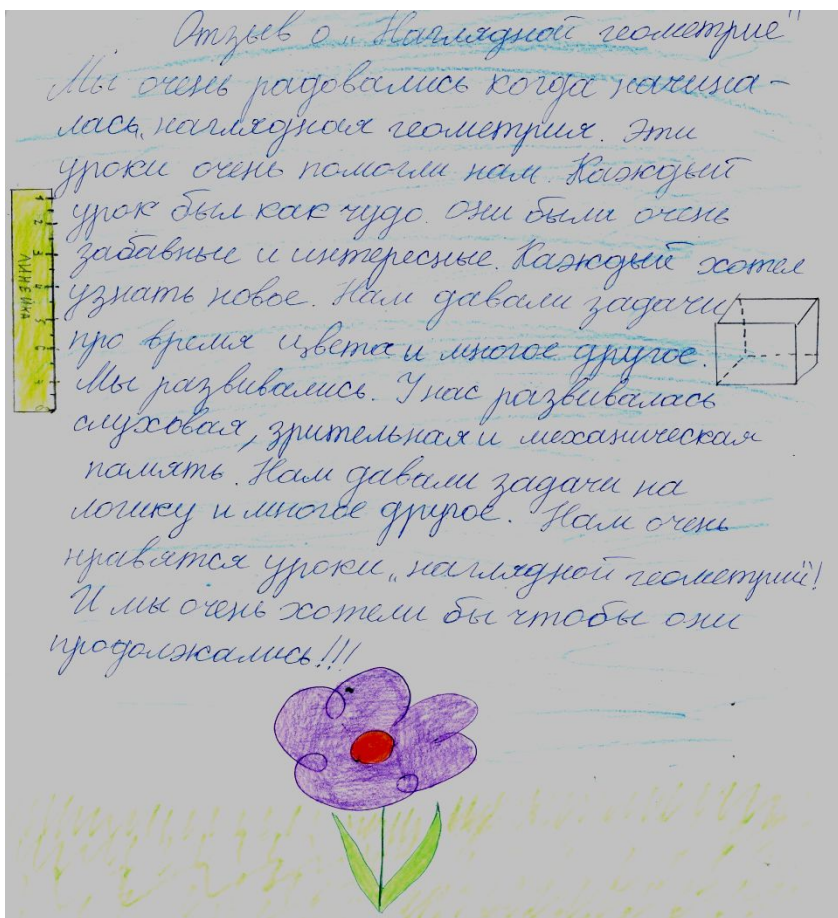 Отзыв о „Наглядной геометрие"
Мы очень радовались когда начина-
лась „наглядная геометрия. Эти
уроки очень помогли нам. Каждый
урок был как чудо. Они были очень
забавные и интересные. Каждый хотел
узнать новое. Нам давали задачи
про время цвета и многое другое.
Мы развивались. У нас развивалась
слуховая, зрительная и механическая
память. Нам давали задачи на
логику и многое другое. Нам очень
нравятся уроки „наглядной геометрий"!
И мы очень хотели бы чтобы они
продолжались!!!
ЛИНЕЙКА